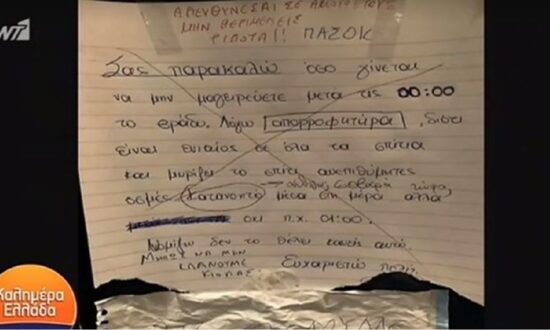 ΑΝΤ1
ΑΠΕΥΘΥΝΕΣΑΙ ΣΕ
ΜΗΝ ΠΕΡΙΜΕΝΕΙΣ
ΤΙΠΟΤΑ!! ΠΑΣΟΚ
Σας παρακαλώ όσο γίνεται
να μην μαγειρεύετε μετα τις 00:00
το βράδυ. Λόγω απορροφητήρα, διότι
είναι ενιαίος σε όλα τα σπίτια
και μυρίζει το σπίτι ανεπιθύμητες
οσμές. Κατανοητό μέσα στη μέρα αλλά
οχι π.χ. 01:00.
Νομίζω δεν το θέλει κανείς αυτό.
ΜΗΠΩΣ ΝΑ ΜΗΝ
ΚΛΑΝΟΥΜΕ
ΚΙΟΛΑΣ
Ευχαριστώ πολύ.
Καλημέρα
Ελλάδα